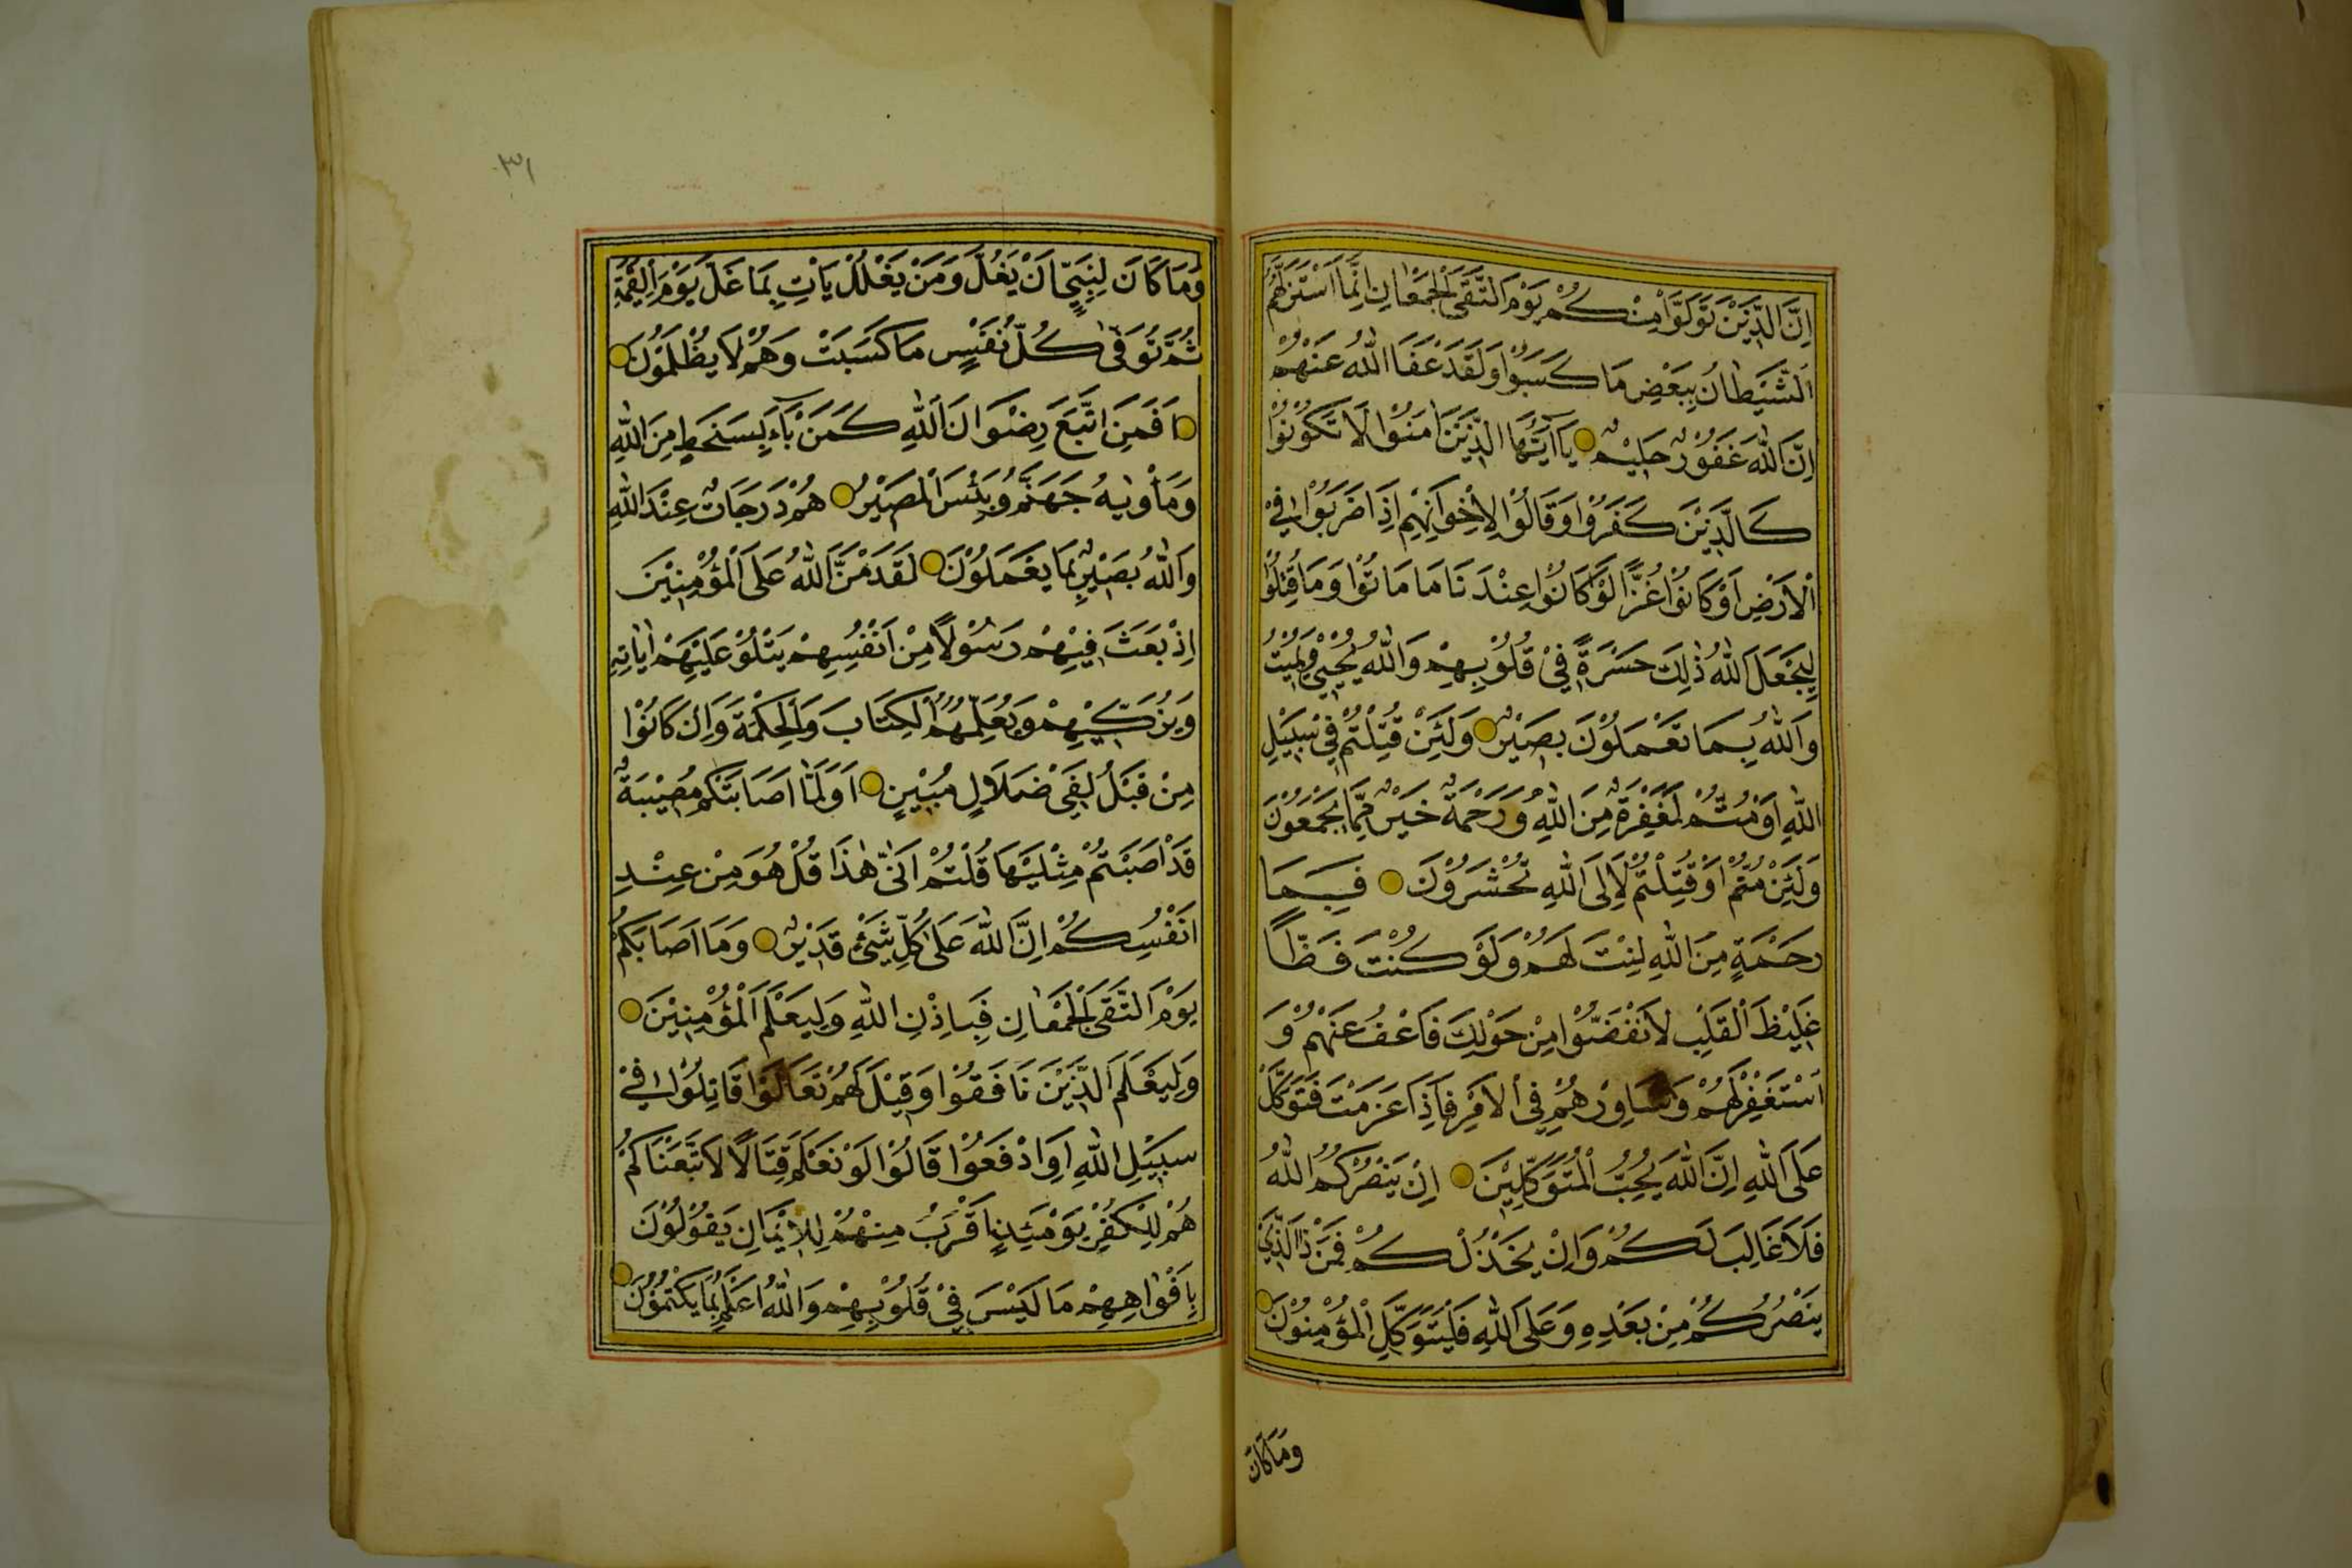 اِنَّ الَّذِيْنَ تَوَلَّوْا مِنْكُمْ يَوْمَ الْتَقَى الْجَمْعٰانِ اِنَّمَا اسْتَزَلَّهُمُ
الشَّيْطَانُ بِبَعْضِ مَا كَسَبُوْا وَلَقَدْ عَفَا اللّٰهُ عَنْهُمْ
اِنَّ اللّٰهَ غَفُوْرٌ حَلِيْمٌ يَا اَيُّهَا الَّذِيْنَ اٰمَنُوْا لَا تَكُوْنُوْا
كَالَّذِيْنَ كَفَرُوْا وَقَالُوْا لِاِخْوَانِهِمْ اِذَا ضَرَبُوْا فِي
الْاَرْضِ اَوْ كَانُوْا غُزًّا لَوْ كَانُوْا عِنْدَنَا مَا مَاتُوْا وَمَا قُتِلُوْا
لِيَجْعَلَ اللّٰهُ ذٰلِكَ حَسْرَةً فِيْ قُلُوْبِهِمْ وَاللّٰهُ يُحْيِيْ وَيُمِيْتُ
وَاللّٰهُ بِمَا تَعْمَلُوْنَ بَصِيْرٌ وَلَئِنْ قُتِلْتُمْ فِيْ سَبِيْلِ
اللّٰهِ اَوْ مُتُّمْ لَمَغْفِرَةٌ مِنَ اللّٰهِ وَرَحْمَةٌ خَيْرٌ مِمَّا يَجْمَعُوْنَ
وَلَئِنْ مُتُّمْ اَوْ قُتِلْتُمْ لَاِلَى اللّٰهِ تُحْشَرُوْنَ فَبِمَا
رَحْمَةٍ مِنَ اللّٰهِ لِنْتَ لَهُمْ وَلَوْ كُنْتَ فَظًّا
غَلِيْظَ الْقَلْبِ لَانْفَضُّوْا مِنْ حَوْلِكَ فَاعْفُ عَنْهُمْ وَ
اسْتَغْفِرْ لَهُمْ وَشَاوِرْهُمْ فِي الْاَمْرِ فَاِذَا عَزَمْتَ فَتَوَكَّلْ
عَلَى اللّٰهِ اِنَّ اللّٰهَ يُحِبُّ الْمُتَوَكِّلِيْنَ اِنْ يَنْصُرْكُمُ اللّٰهُ
فَلَا غَالِبَ لَكُمْ وَاِنْ يَخْذُلْكُمْ فَمَنْ ذَا الَّذِيْ
يَنْصُرُكُمْ مِنْ بَعْدِهِ وَعَلَى اللّٰهِ فَلْيَتَوَكَّلِ الْمُؤْمِنُوْنَ
وَمَا كَانَ
٣١
وَمَا كَانَ لِنَبِيٍّ اَنْ يَغُلَّ وَمَنْ يَغْلُلْ يَأْتِ بِمَا غَلَّ يَوْمَ الْقِيٰمَةِ
ثُمَّ تُوَفّٰى كُلُّ نَفْسٍ مَا كَسَبَتْ وَهُمْ لَا يُظْلَمُوْنَ
اَفَمَنِ اتَّبَعَ رِضْوَانَ اللّٰهِ كَمَنْ بَآءَ بِسَخَطٍ مِنَ اللّٰهِ
وَمَأْوٰيهُ جَهَنَّمُ وَبِئْسَ الْمَصِيْرُ هُمْ دَرَجَاتٌ عِنْدَ اللّٰهِ
وَاللّٰهُ بَصِيْرٌ بِمَا يَعْمَلُوْنَ لَقَدْ مَنَّ اللّٰهُ عَلَى الْمُؤْمِنِيْنَ
اِذْ بَعَثَ فِيْهِمْ رَسُوْلًا مِنْ اَنْفُسِهِمْ يَتْلُوْ عَلَيْهِمْ اٰيَاتِهِ
وَيُزَكِّيْهِمْ وَيُعَلِّمُهُمُ الْكِتَابَ وَالْحِكْمَةَ وَاِنْ كَانُوْا
مِنْ قَبْلُ لَفِيْ ضَلَالٍ مُبِيْنٍ اَوَلَمَّا اَصَابَتْكُمْ مُصِيْبَةٌ
قَدْ اَصَبْتُمْ مِثْلَيْهَا قُلْتُمْ اَنّٰى هٰذَا قُلْ هُوَ مِنْ عِنْدِ
اَنْفُسِكُمْ اِنَّ اللّٰهَ عَلٰى كُلِّ شَيْءٍ قَدِيْرٌ وَمَا اَصَابَكُمْ
يَوْمَ الْتَقَى الْجَمْعٰانِ فَبِاِذْنِ اللّٰهِ وَلِيَعْلَمَ الْمُؤْمِنِيْنَ
وَلِيَعْلَمَ الَّذِيْنَ نَافَقُوْا وَقِيْلَ لَهُمْ تَعَالَوْا قَاتِلُوْا فِيْ
سَبِيْلِ اللّٰهِ اَوِ ادْفَعُوْا قَالُوْا لَوْ نَعْلَمُ قِتَالًا لَاتَّبَعْنَاكُمْ
هُمْ لِلْكُفْرِ يَوْمَئِذٍ اَقْرَبُ مِنْهُمْ لِلْاِيْمَانِ يَقُوْلُوْنَ
بِاَفْوَاهِهِمْ مَا لَيْسَ فِيْ قُلُوْبِهِمْ وَاللّٰهُ اَعْلَمُ بِمَا يَكْتُمُوْنَ